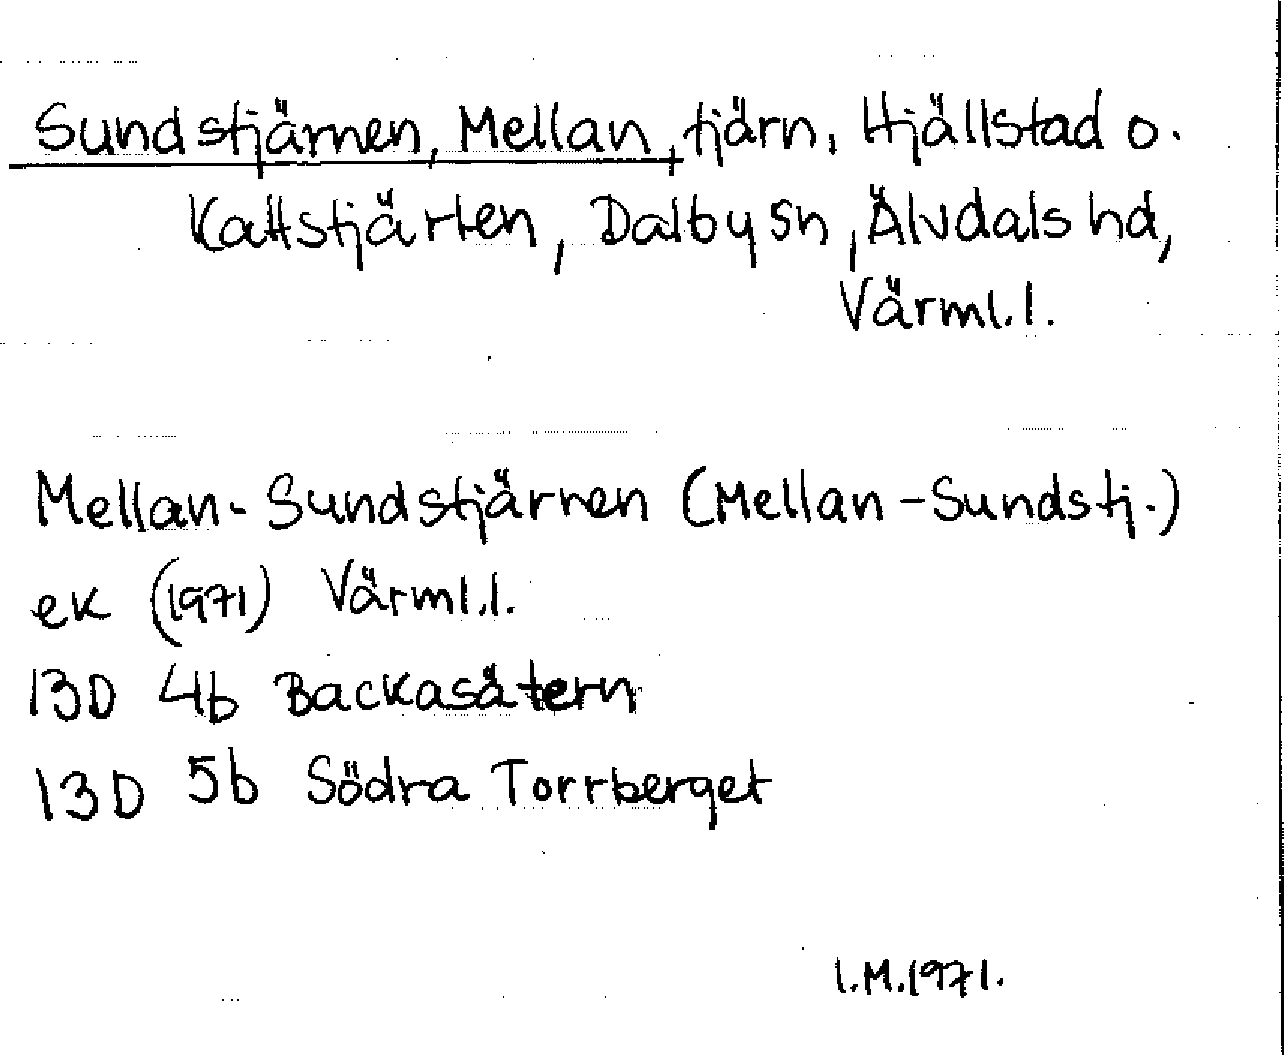 Sundstjärnen, Mellan, tjärn, Hjällstad o.
Kattstjärten, Dalby sn, Älvdals hd,
Värml.l.
Mellan-Sundstjärnen (Mellan-Sundstj.)
ek (1971) Värml.l.
13D 4b Backasätern
13D 5b Södra Torrberget
I.M.1971.